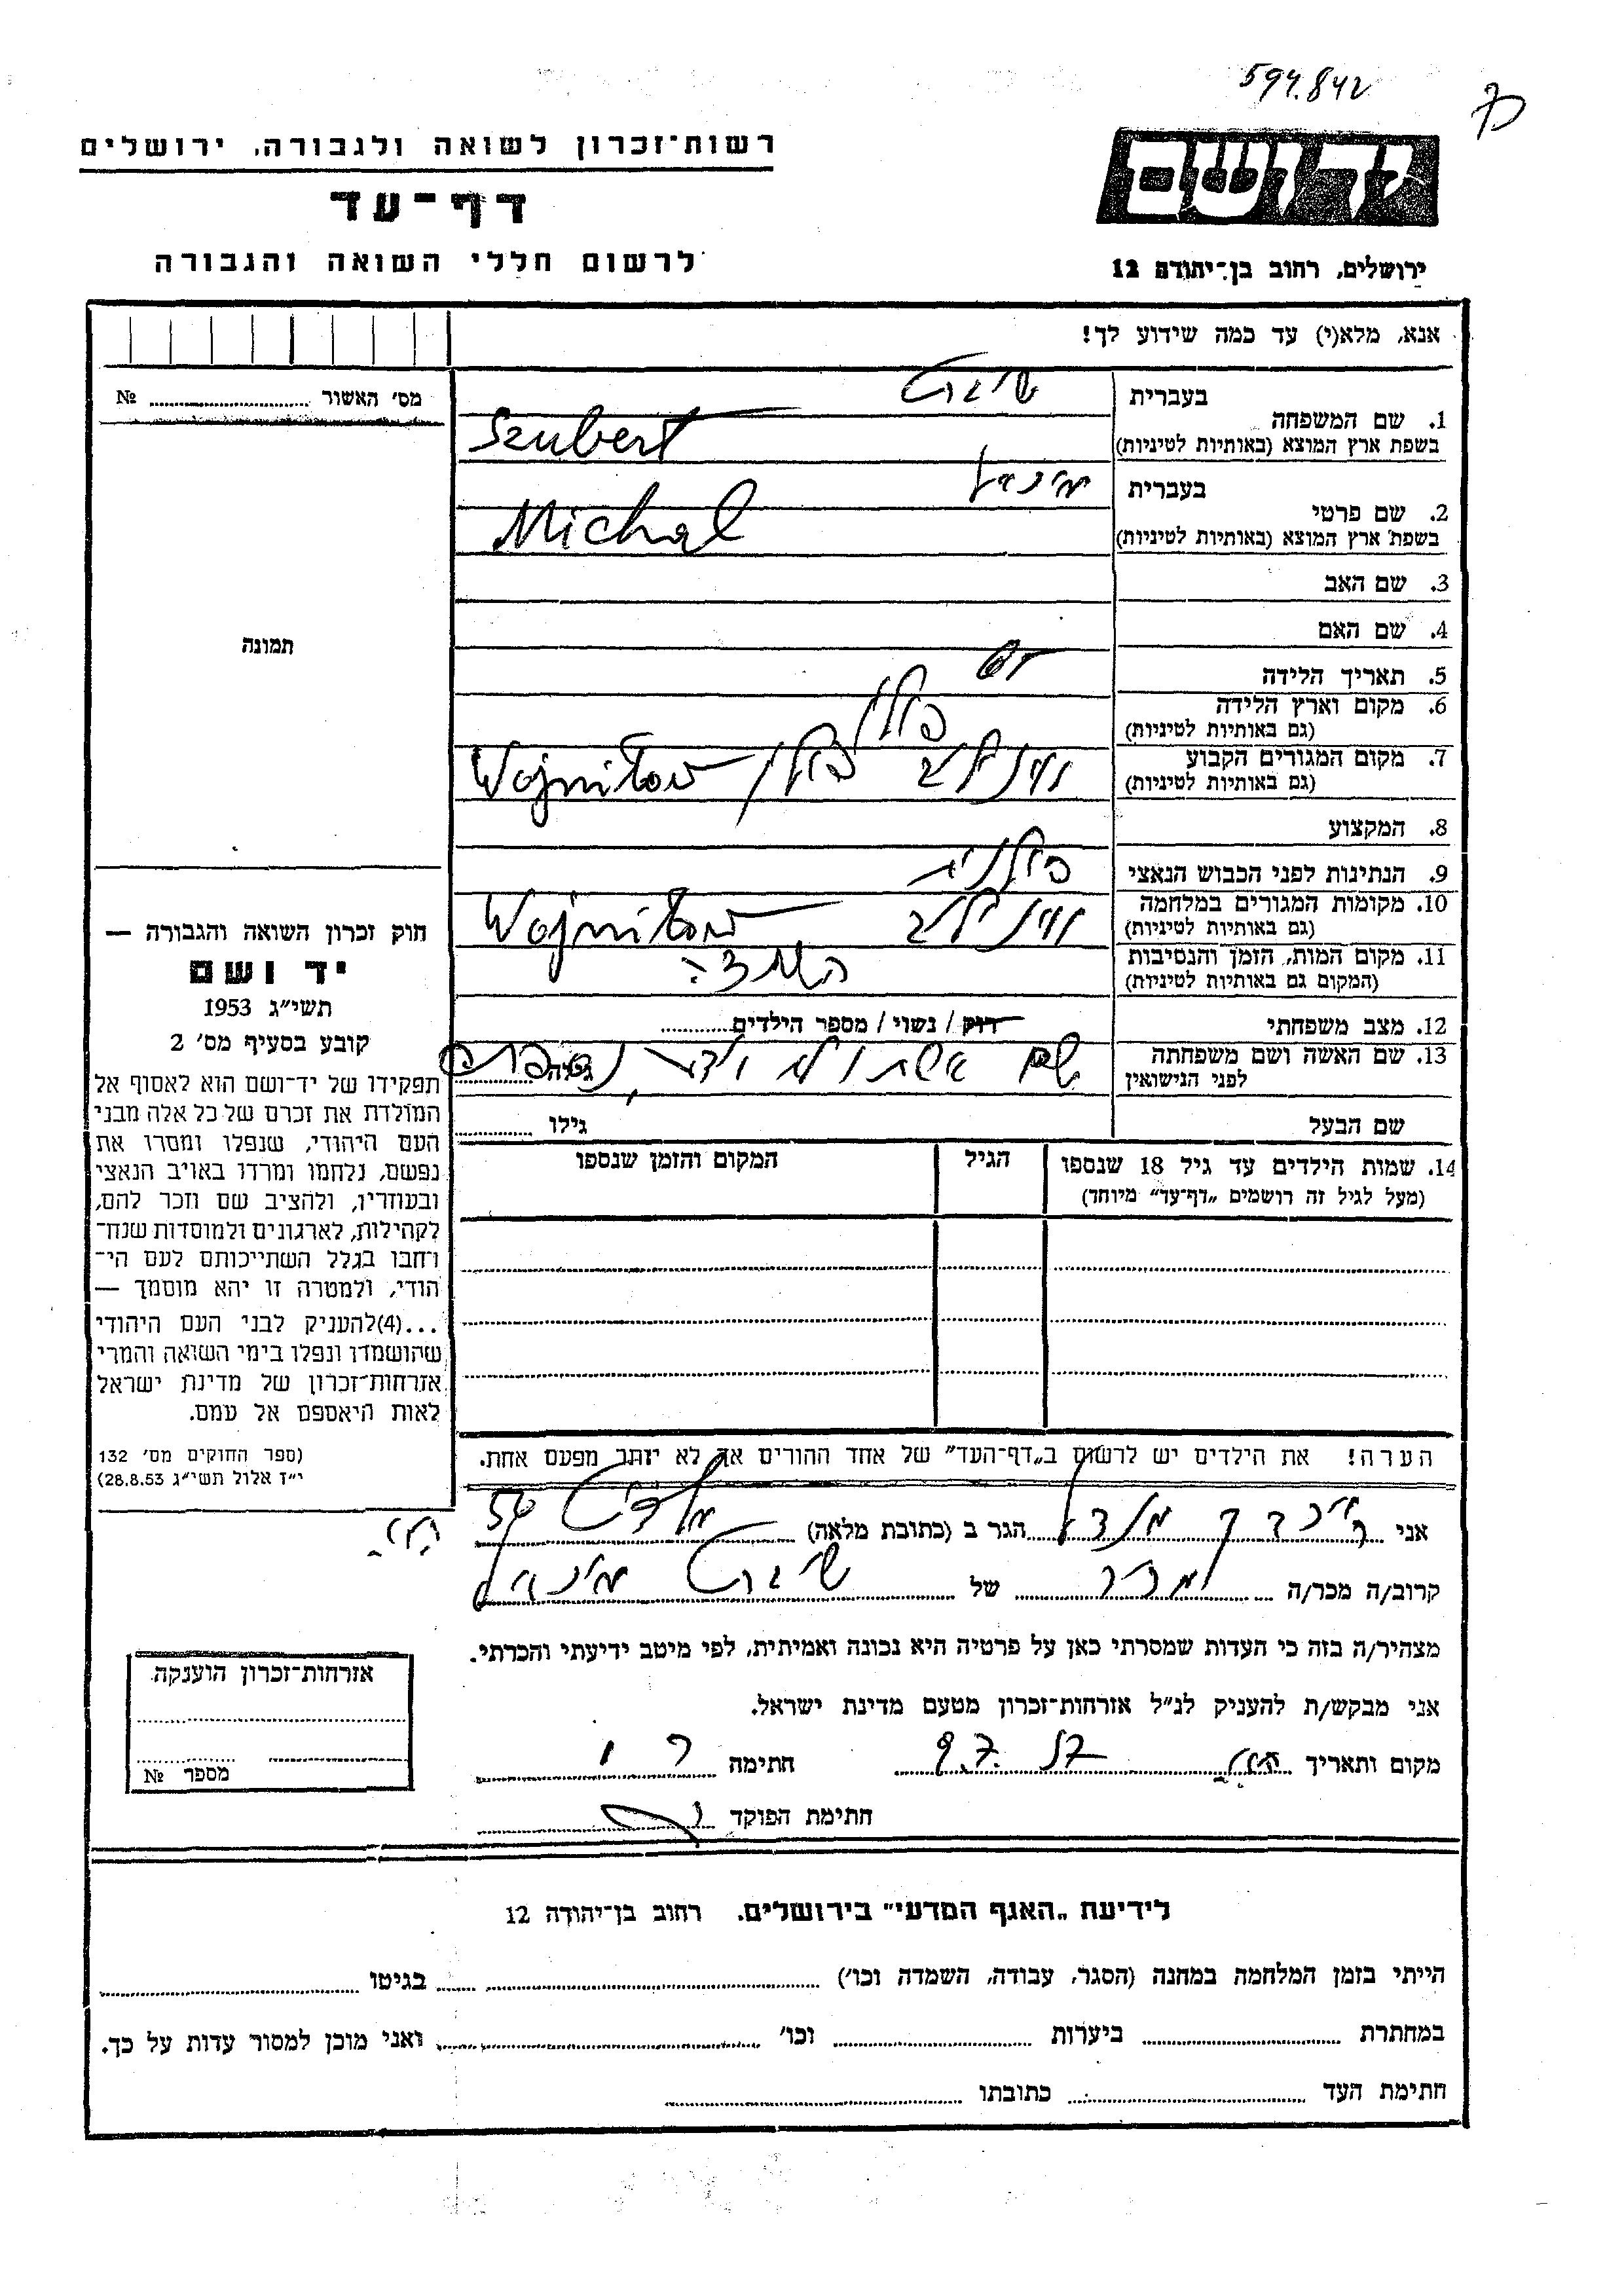 594.842
רשות־זכרון לשואה ולגבורה, ירושלים
דף־עד
לרשום חללי השואה והגבורה
יד ושם
ירושלים, רחוב בן־יהודה 12
אנא, מלא(י) עד כמה שידוע לך!
מס' האשור № 
תמונה
חוק זכרון השואה והגבורה —
יד ושם
תשי״ג 1953
קובע בסעיף מס' 2
תפקידו של יד־ושם הוא לאסוף אל
המולדת את זכרם של כל אלה מבני
העם היהודי, שנפלו ומסרו את
נפשם, נלחמו ומרדו באויב הנאצי
ובעוזריו, ולהציב שם וזכר להם,
לקהילות, לארגונים ולמוסדות שנח־
רחבו בגלל השתייכותם לעם הי־
הודי, ולמטרה זו יהא מוסמך —
...(4)להעניק לבני העם היהודי
שהושמדו ונפלו בימי השואה והמרי
אזרחות־זכרון של מדינת ישראל
לאות היאספם אל עמם.
(ספר החוקים מס' 132
י״ז אלול תשי״ג 28.8.53)
1. שם המשפחה בעברית שוברט
בשפת ארץ המוצא (באותיות לטיניות) Szubert
2. שם פרטי בעברית מיכאל
בשפת ארץ המוצא (באותיות לטיניות) Michal
3. שם האב
4. שם האם
5. תאריך הלידה
6. מקום וארץ הלידה פולין
(גם באותיות לטיניות)
7. מקום המגורים הקבוע פולין Wojnitow
(גם באותיות לטיניות)
8. המקצוע
9. הנתינות לפני הכבוש הנאצי פולנית
10. מקומות המגורים במלחמה Wojnitow
(גם באותיות לטיניות)
11. מקום המות, הזמן והנסיבות
(המקום גם באותיות לטיניות)
12. מצב משפחתי רוק / נשוי / מספר הילדים
13. שם האשה ושם משפחתה עם אשתו
לפני הנישואין גילה
שם הבעל גילו
14. שמות הילדים עד גיל 18 שנספו הגיל המקום והזמן שנספו
(מעל לגיל זה רושמים „דף־עד״ מיוחד)
הערה! את הילדים יש לרשום ב„דף־העד״ של אחד ההורים אך לא יותר מפעם אחת.
אני הגר ב (כתובת מלאה)
קרוב/ה מכר/ה מכר של שוברט מיכאל
מצהיר/ה בזה כי העדות שמסרתי כאן על פרטיה היא נכונה ואמיתית, לפי מיטב ידיעתי והכרתי.
אני מבקש/ת להעניק לנ״ל אזרחות־זכרון מטעם מדינת ישראל.
מקום ותאריך 9.7.57 חתימה
חתימת הפוקד
אזרחות־זכרון הוענקה
מספר №
לידיעת „האגף המדעי״ בירושלים. רחוב בן־יהודה 12
הייתי בזמן המלחמה במחנה (הסגר, עבודה, השמדה וכו') בגיטו
במחתרת ביערות וכו' ואני מוכן למסור עדות על כך.
חתימת העד כתובתו